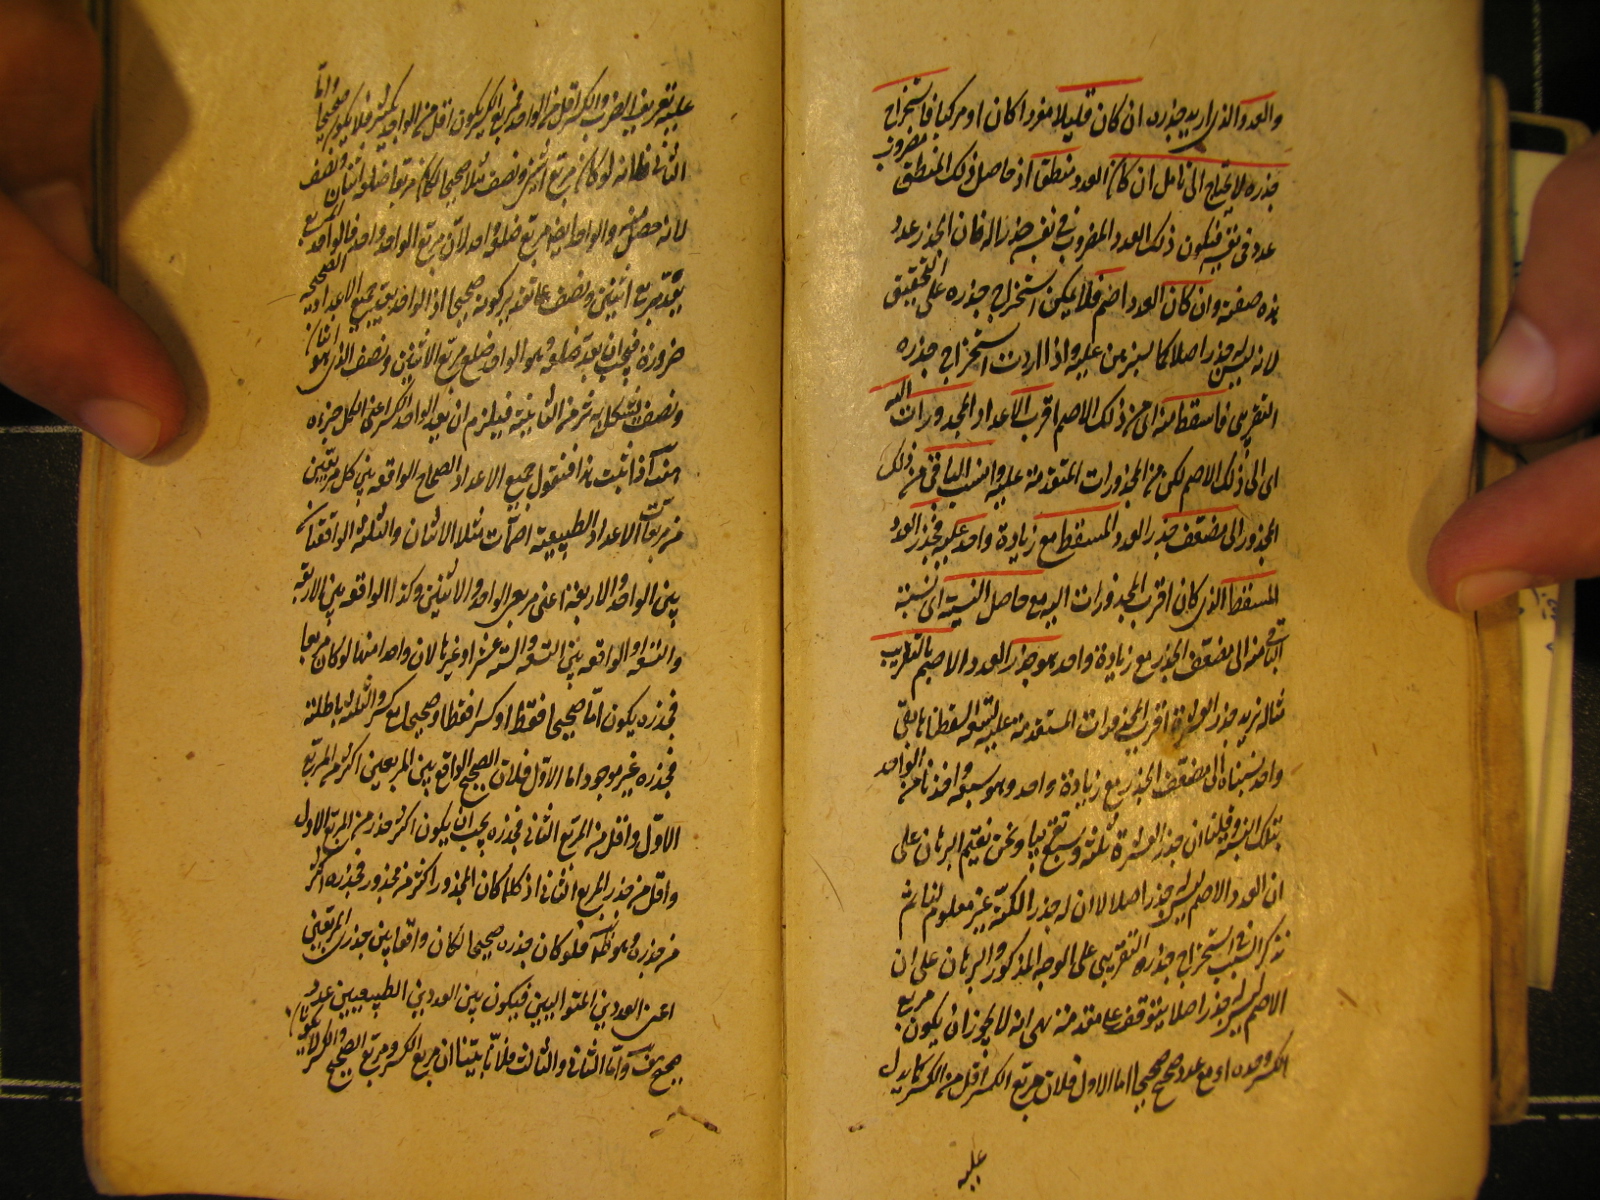 والعدد الذى اريد جذره ان كان قليلا مفردا كان او مركبا فاستخراج
جذره لا يحتاج الى تامل ان كان العدد منطق اذ حاصل ذلك المنطق مضروب
عدد فى نفسه فيكون ذلك العدد المضروب فى نفسه جذرا له فان الجذر عدد
هذه صفته وان كان العدد اصم فلا يمكن استخراج جذره على التحقيق
لانه ليس له جذر اصلا كما سنبرهن عليه واذا اردت استخراج جذره
التقريبى فاسقط منه اى من ذلك الاصم اقرب الاعداد المجذورات اليه
اى الى ذلك الاصم لكن من المجذورات المتقدمة عليه وانسب الباقى من ذلك
المجذور الى مضعف جذر العدد المسقط مع زيادة واحد عليه فجذر العدد
المسقط الذى كان اقرب المجذورات اليه مع حاصل النسبة اى نسبة
الباقى منه الى مضعف الجذر مع زيادة واحد هو جذر العدد الاصم بالتقريب
مثاله نريد جذر العشرة اقرب المجذورات المتقدمة عليه التسعة اسقطناها بقى
واحد نسبناه الى مضعف الجذر مع زيادة واحد وهو سبعة واخذنا من الواحد
بتلك النسبة وقلنا ان جذر العشرة ثلثة وسبع تقريبا ونحن نقيم البرهان على
ان العدد الاصم ليس له جذر اصلا لا ان له جذرا لكنه غير معلوم لنا ثم
نذكر السبب فى استخراج جذره التقريبى على الوجه المذكور والبرهان على ان
الاصم ليس له جذر اصلا يتوقف على مقدمة هى انه لا يجوز ان يكون مربع
الكسر وحده او مع عدد صحيح صحيحا اما الاول فلان مربع الكسر اقل من الكسر كما يدل
عليه
عليه تعريف الضرب والكسر اقل من الواحد فمربع الكسر يكون اقل من الواحد بكثير فلا يكون صحيحا واما
الثانى فلانه لو كان مربع اثنين ونصف مثلا صحيحا لكان مربعا ضلعه اثنان ونصف
لانه حصل منه والواحد ايضا مربع ضلعه واحد لان مربع الواحد واحد فالواحد المربع
يعد مربع اثنين ونصف على تقدير كونه صحيحا اذ الواحد يعد جميع الاعداد الصحيحة
ضرورة فيجب ان يعد ضلعه وهو الواحد ضلع مربع الاثنين ونصف الذى هو اثنان
ونصف الثامنة فيلزم ان يعد الواحد الكسر اعنى الكل جزءه
هف اذا ثبت هذا فنقول جميع الاعداد الصحاح الواقعة بين كل مربعين
من مربعات الاعداد الطبيعية اصمات مثلا الاثنان والثلثة الواقعتان
بين الواحد والاربعة اعنى مربعى الواحد والاثنين وكذا الواقعة بين الاربعة
والتسعة او الواقعة بين التسعة والستة عشر او غيرها لان واحدا منها لو كان مربعا
فجذره يكون اما صحيحا فقط او كسرا فقط او صحيحا مع كسر والثلثة باطلة
فجذره غير موجود اما الاول فلان الصحيح الواقع بين المربعين اكثر من المربع
الاول واقل من المربع الثانى فجذره يجب ان يكون اكثر من جذر المربع الاول
واقل من جذر المربع الثانى اذ كلما كان المجذور اكثر من مجذور فجذره اكثر
من جذره وهو ظاهر فلو كان جذره صحيحا لكان واقعا بين جذرى المربعين
اعنى العددين المتواليين فيكون بين العددين الطبيعيين عدد
صحيح هف واما الثانى والثالث فلانا بينا ان مربع الكسر ومربع الصحيح والكسر لا يكونان